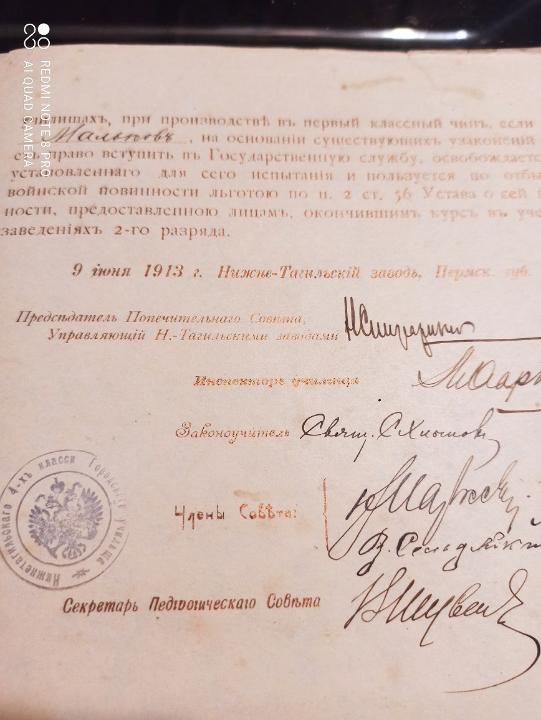 REDMI NOTE 8 PRO
AI QUAD CAMERA
при производствѣ въ первый классный чинъ, если
Мальковъ, на основаніи существующихъ узаконеній
право вступить въ Государственную службу, освобождаетс
установленнаго для сего испытанія и пользуется по отбы
воинской повинности льготою по п. 2 ст. 56 Устава о сей п
ности, предоставленною лицамъ, окончившимъ курсъ въ уче
заведеніяхъ 2-го разряда.
9 іюня 1913 г. Нижне-Тагильскій заводъ, Пермск. губ.
Предсѣдатель Попечительнаго Совѣта,
Управляющій Н.-Тагильскими заводами
Инспекторъ училища
Законоучитель Свящ. С.
Члены Совѣта:
Секретарь Педагогическаго Совѣта
Нижнетагильскаго 4-хъ класс. Городского Училища